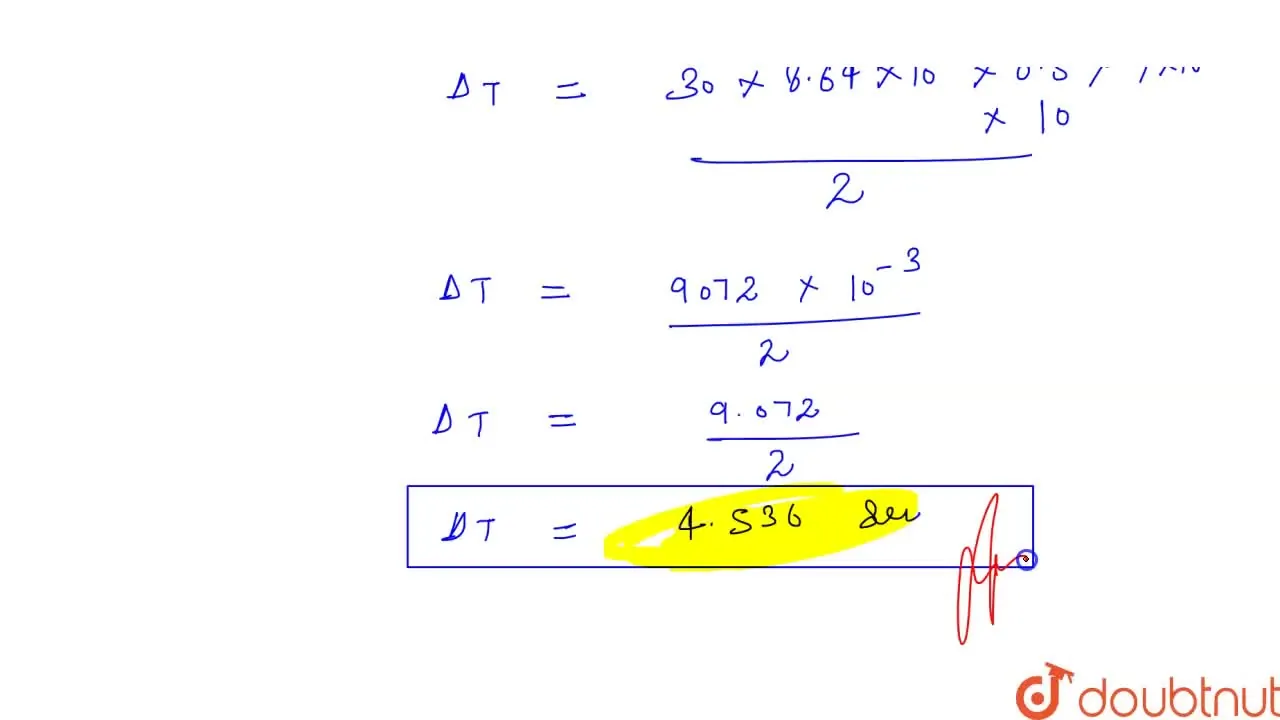 ΔT = 30 × 8.64 × 10 ×
× 10
2
ΔT = 9072 × 10⁻³
2
ΔT = 9.072
2
ΔT = 4.536 Sec
doubtnut